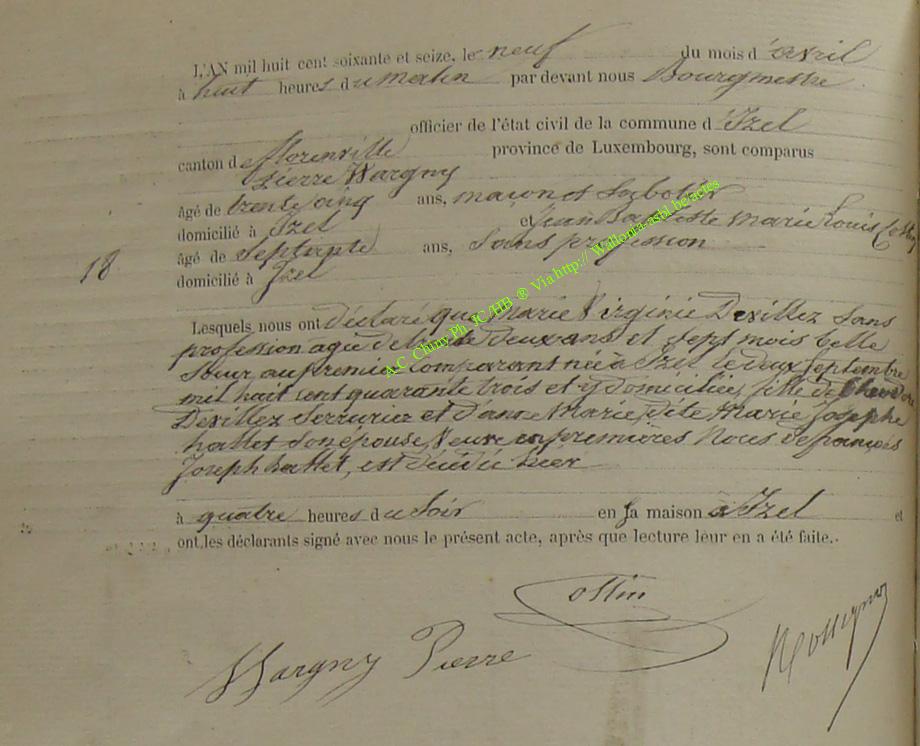 L'AN mil huit cent soixante et seize, le neuf du mois d'avril
à huit heures du matin par devant nous Bourgmestre
officier de l'état civil de la commune d'Izel
canton de Florenville province de Luxembourg, sont comparus
Pierre Wargny
âgé de trente cinq ans, maçon et Sabotier
domicilié à Izel et Jean Baptiste Marie Louis
âgé de Septante ans, Sans profession
18
domicilié à Izel
Lesquels nous ont déclaré que Marie Virginie Devillez Sans
profession agée de trente deux ans et Sept mois belle
Soeur au premier Comparant née à Izel le deux Septembre
mil huit cent quarante trois et y domiciliée, fille de
Devillez Serrurier et d'anne Marie, dite Marie Josephe
hallet Son épouse Veuve en premières Noces de françois
Joseph hallet, est décédée hier
à quatre heures du Soir en Sa maison à Izel et
ont les déclarants signé avec nous le présent acte, après que lecture leur en a été faite.
Wargny Pierre
A.C. Chiny Ph. JC/HB ® Via http:// Wallonia-asbl.be/actes